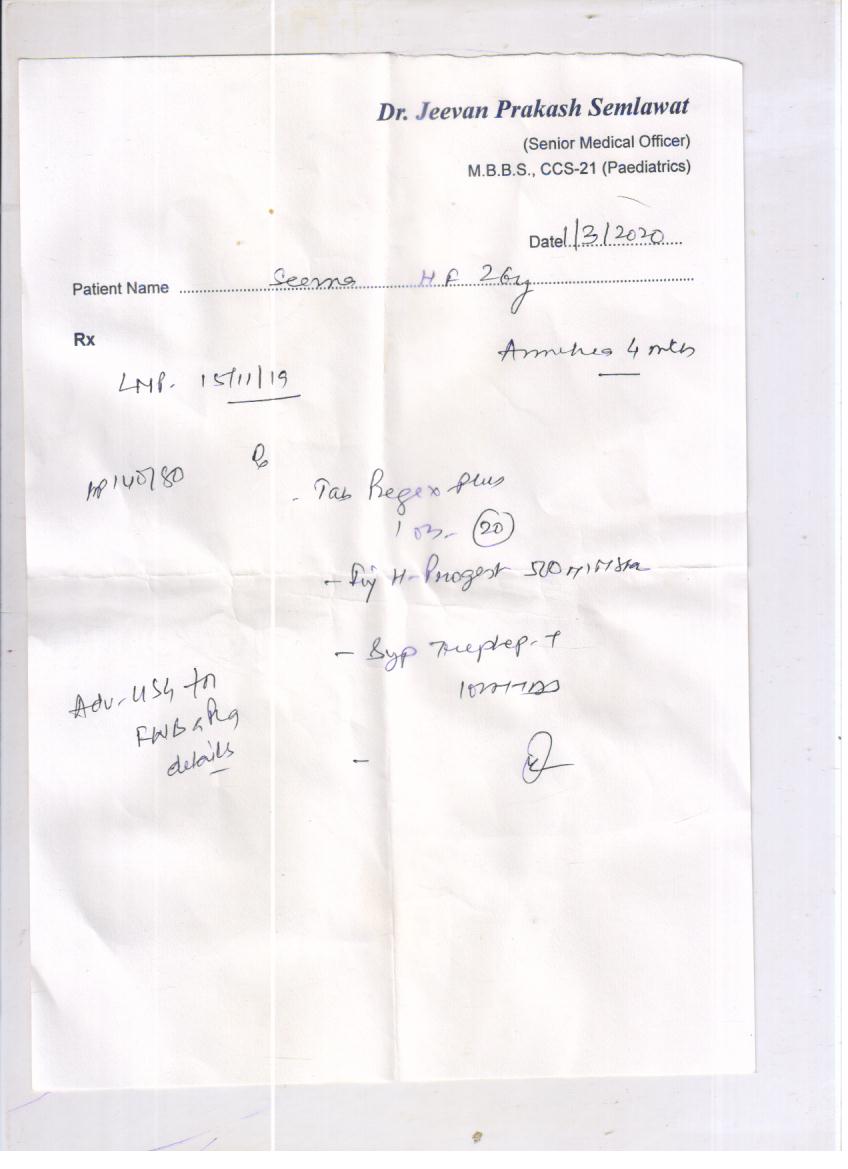 Dr. Jeevan Prakash Semlawat
(Senior Medical Officer)
M.B.B.S., CCS-21 (Paediatrics)
Date 1/3/2020
Patient Name Seema H F 26y
Rx
4 mth
LMP. 15/11/19
BP 140/80
- Tab Regex plus
1 OD - 20
- Inj H-Progest 500
- Syp
Adv. USG for
FWB &
details